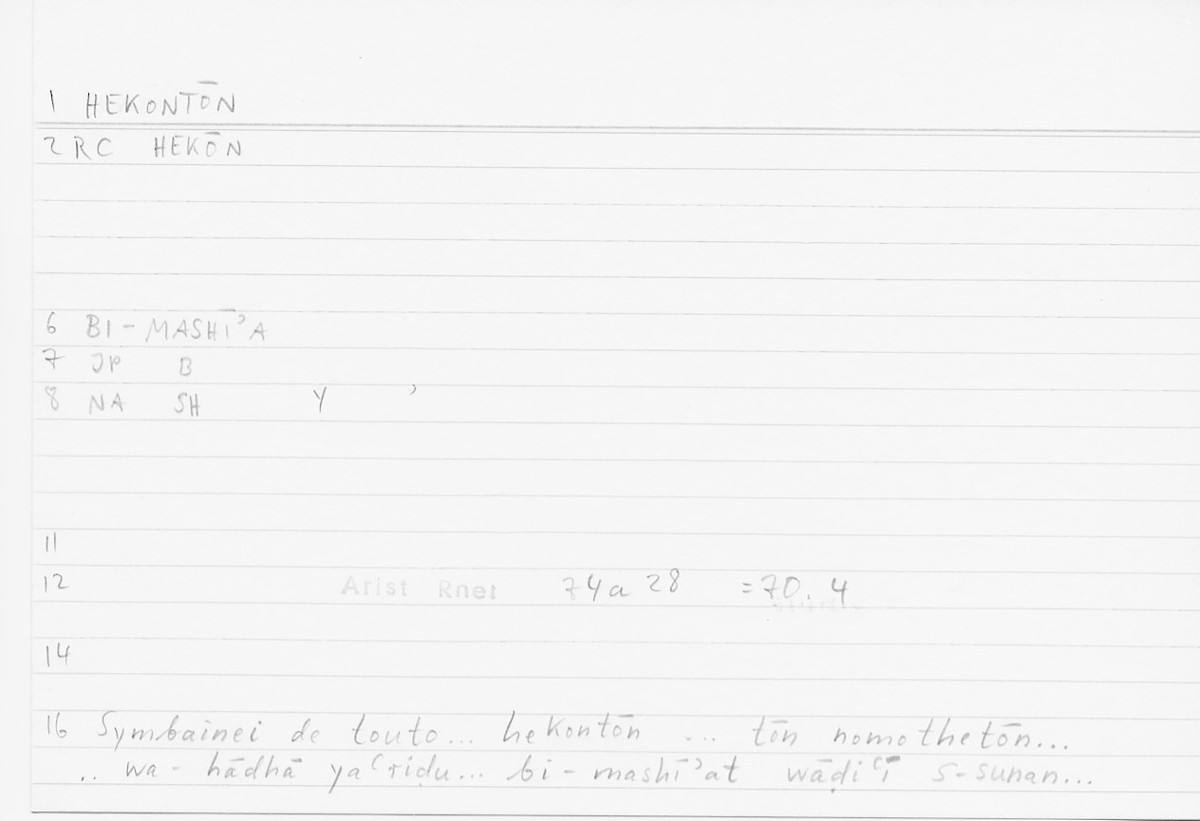 1 HEKONTŌN
2 RC HEKŌN
6 BI-MASHĪʾA
7 JP B
8 NA SH Y ʾ
11
12 Arist Rhet 74a 28 =70.4
14
16 Symbainei de touto... hekontōn ... tōn nomothetōn...
.. wa-hādhā yaʿriḍu... bi-mashīʾat wāḍiʿī s-sunan...